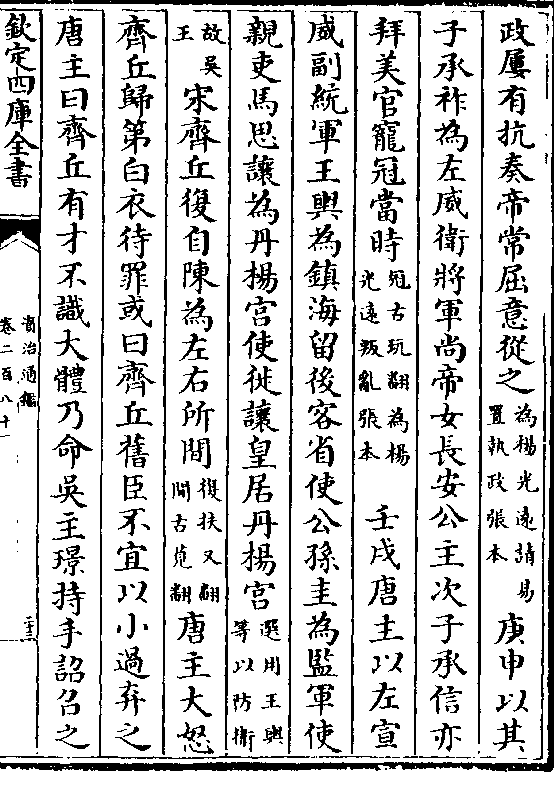 政屢有抗奏帝常屈意從之為楊光遠請易置執政張本庚申以其
子承祚為左威衛將軍尚帝女長安公主次子承信亦
拜美官寵冠當時冠古玩翻為楊光遠叛亂張本壬戌唐主以左宣
威副統軍王輿為鎮海留後客省使公孫圭為監軍使
親吏馬思讓為丹楊宮使徙讓皇居丹楊宮選用王輿等以防衛
故吳王宋齊丘復自陳為左右所間復扶又翻間古莧翻唐主大怒
齊丘歸第白衣待罪或曰齊丘舊臣不宜以小過弃之
唐主曰齊丘有才不識大體乃命吳主璟持手詔召之
欽定四庫全書
資治通鑑
卷二百八十一
二十三